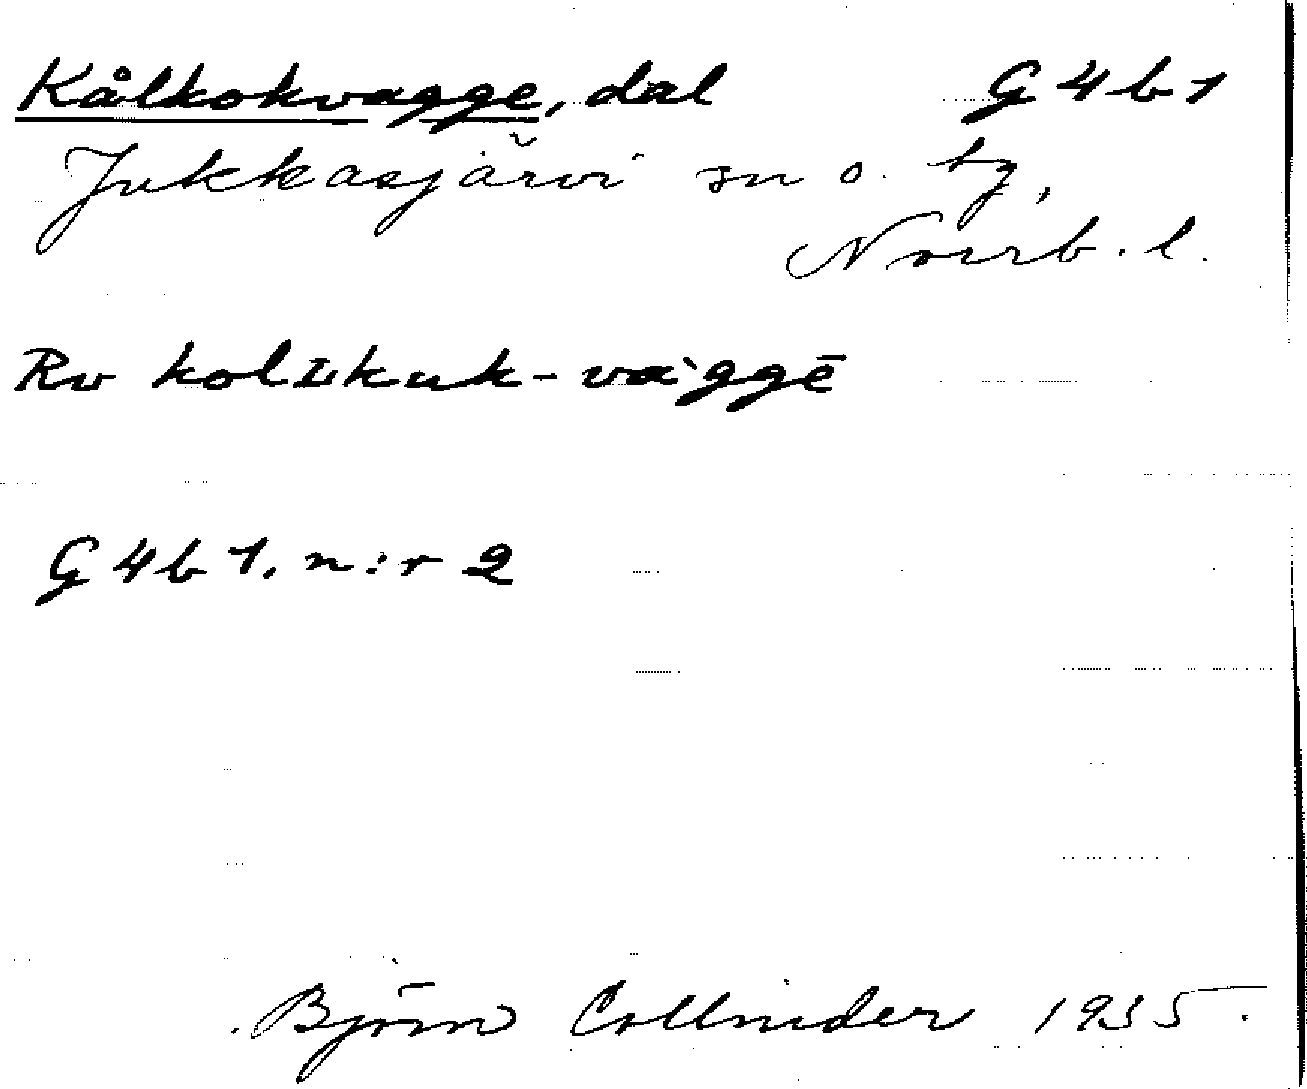 Kålkokvagge, dal G4b1
Jukkasjärvi sn o. tg,
Norrb. l.
Rv kolᴌkuk-vàggē
G4b1. n:r 2
Björn Collinder 1935.